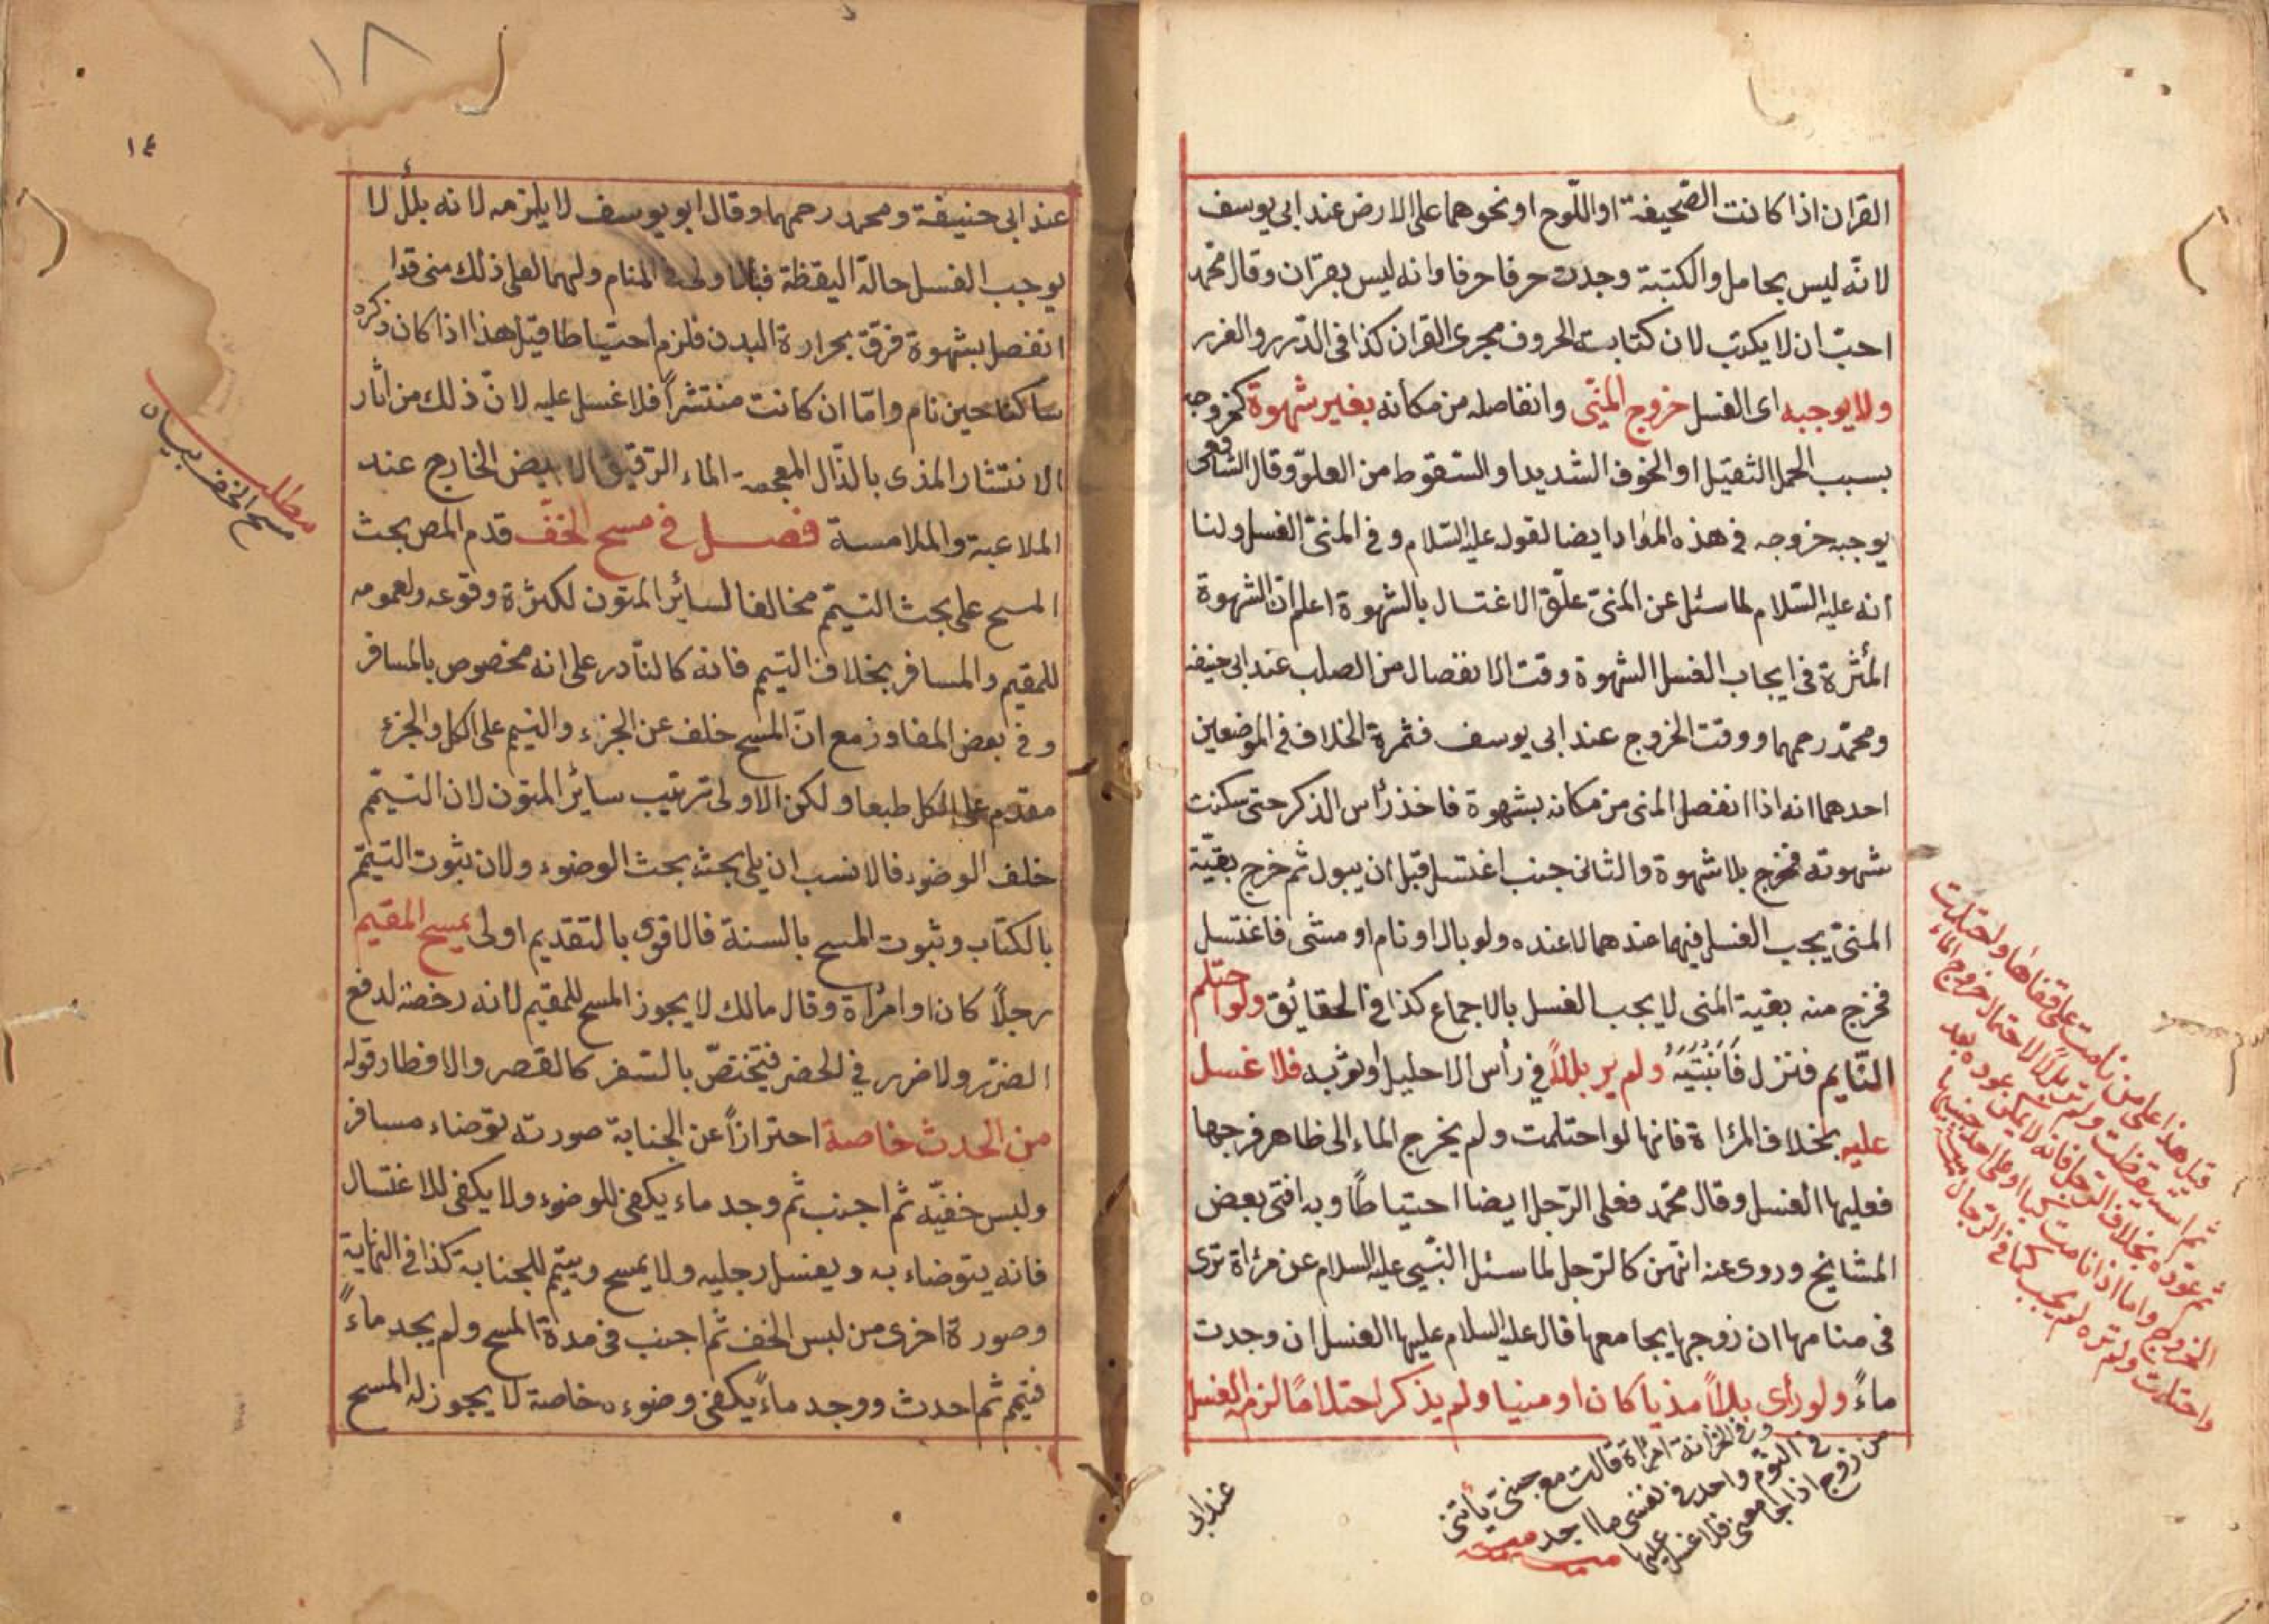 القران اذا كانت الصّحيفة او اللّوح او نحوهما على الارض عند ابى يوسف
لانّه ليس بحامل والكتبة وجدت حرفا حرفا وانه ليس بقران وقال محمّد
احبّ ان لا يكتب لان كتابت الحروف مجرى القران كذا فى الدّرر والغرر
ولا يوجبه اى الغسل خروج المنّى وانفاصله من مكانه بغير شهوة كخروجه
بسبب الحمل الثقيل او الخوف الشديد او السّقوط من العلوّ وقال الشافعى
يوجبه خروجه فى هذه المواد ايضا لقوله عليه السّلام وفى المنىّ الغسل ولنا
انه عليه السّلام لما سئل عن المنىّ علّق الاغتسال بالشهوة اعلم انّ الشهوة
المأثرة فى ايجاب الغسل الشهوة وقت الانفصال من الصلب عند ابى حنيفه
ومحمّد رحمهما ووقت الخروج عند ابى يوسف فثمرة الخلاف فى الموضعين
احدهما انه اذا انفصل المنى من مكانه بشهوة فاخذ رأس الذكر حتى سكنت
شهوته فخرج بلا شهوة والثانى جنب اغتسل قبل ان يبول ثم خرج بقيّة
المنىّ يجب الغسل فيهما عندهما لا عنده ولو بال او نام او مشى فاغتسل
فخرج منه بقية المنى لا يجب الغسل بالاجماع كذا فى الحقائق ولو احتلم
النّايم فتنزل فانتبه ولم ير بللاً فى رأس الاحليل او ثوبه فلا غسل
عليه بخلاف المرأة فانها لو احتلمت ولم يخرج الماء الى ظاهر فرجها
فعليها الغسل وقال محمّد فعلى الرّجل ايضا احتياطًا وبه افتى بعض
المشايخ وروى عنه انّهن كالرّجل لما سئل النّبى عليه السلام عن مرأة ترى
فى منامها ان زوجها يجامعها قال عليه السلام عليها الغسل ان وجدت
ماءً ولو رأى بللاً مذيا كان او منيا ولم يذكر احتلامًا لزمه الغسل
قيل هذا على من نامت على قفاها واحتلمت
ثم استيقظت ولم تر بللاً لاحتمال خروج الماء
ثم عوده بخلاف الرجل فانه لا يمكن عوده بعد
الخروج واما اذا نامت او على احد جنبيها
واحتلمت ولم تره لم يجب كما فى الرجال
وفى الخزانة امرأة قالت مع جنى يأتنى
فى النوم واجد فى نفسى ما اجد
من زوج اذا جامعنى فلا غسل عليها
عند ابى
١٨
١٤
عند ابى حنيفة ومحمد رحمهما وقال ابو يوسف لا يلزمه لانه بلل لا
يوجب الغسل حالة اليقظة فبالاولى المنام ولهما لعل ذلك منى قد
انفصل بشهوة فرقّ بحرارة البدن فلزم احتياطا قيل هذا اذا كان ذكره
ساكنا حين نام وامّا ان كانت منتشراً فلا غسل عليه لانّ ذلك من اثار
الانتشار المذى بالذّال المعجمة الماء الرّقيق الابيض الخارج عند
الملاعبة والملامسة فصل فى مسح الخفّ قدم المص بحث
المسح على بحث التيمّم مخالفا لسائر المتون لكثرة وقوعه ولعمومه
للمقيم والمسافر بخلاف التيمم فانه كالنّادر على انه مخصوص بالمسافر
وفى بعض المفاوز مع انّ المسح خلف عن الجزء والتيمم على الكل والجزء
مقدم على الكل طبعا ولكن الاولى ترتيب سائر المتون لان التيمّم
خلف الوضوء فالانسب ان يلى بحثه بحث الوضوء ولان ثبوت التيمّم
بالكتاب وثبوت المسح بالسنة فالاقوى بالتقديم اولى يمسح المقيم
رجلًا كان او امرأة وقال مالك لا يجوز المسح للمقيم لانه رخصة لدفع
الضرر ولا ضرر فى الحضر فيختصّ بالسّفر كالقصر والافطار قوله
من الحدث خاصة احترازاً عن الجنابة صورته توضاء مسافر
ولبس خفيّه ثم اجنب ثم وجد ماء يكفى للوضوء ولا يكفى للاغتسال
فانه يتوضاء به ويغسل رجليه ولا يمسح ويتيمم للجنابة كذا فى النهاية
وصورة اخرى من لبس الخف ثم اجنب فى مدة المسح ولم يجد ماءً
فتيمم ثم احدث ووجد ماءً يكفى وضوءه خاصة لا يجوز له المسح
مطلب
مسح الخف بيان